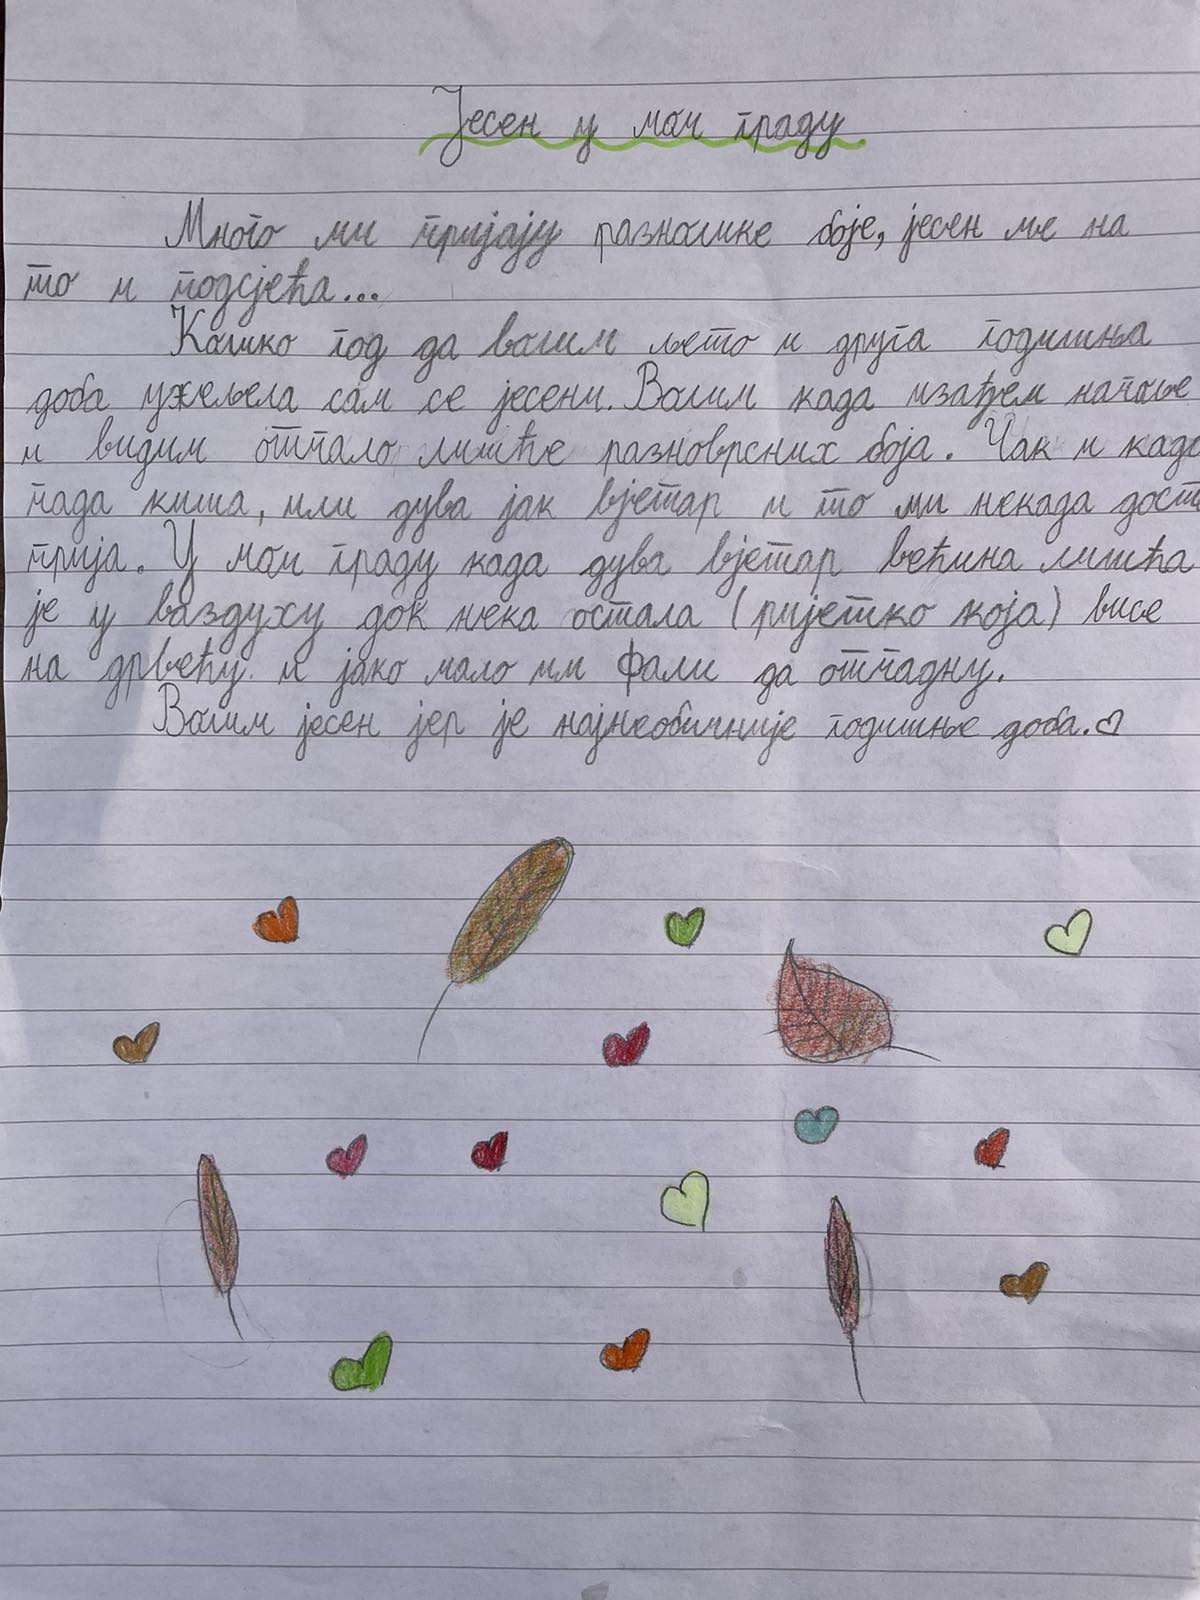 Јесен у мом граду
Много ми пријају разнолике боје, јесен ме на
то и подсјећа...
Колико год да волим љето и друга годишња
доба ужељела сам се јесени. Волим када изађем напоље
и видим отпало лишће разноврсних боја. Чак и када
пада киша, или дува јак вјетар и то ми некада дост
прија. У мом граду када дува вјетар већина лишћа
је у ваздуху док нека остала (ријетко која) висе
на дрвећу и јако мало им фали да отпадну.
Волим јесен јер је најнеобичније годишње доба.♡